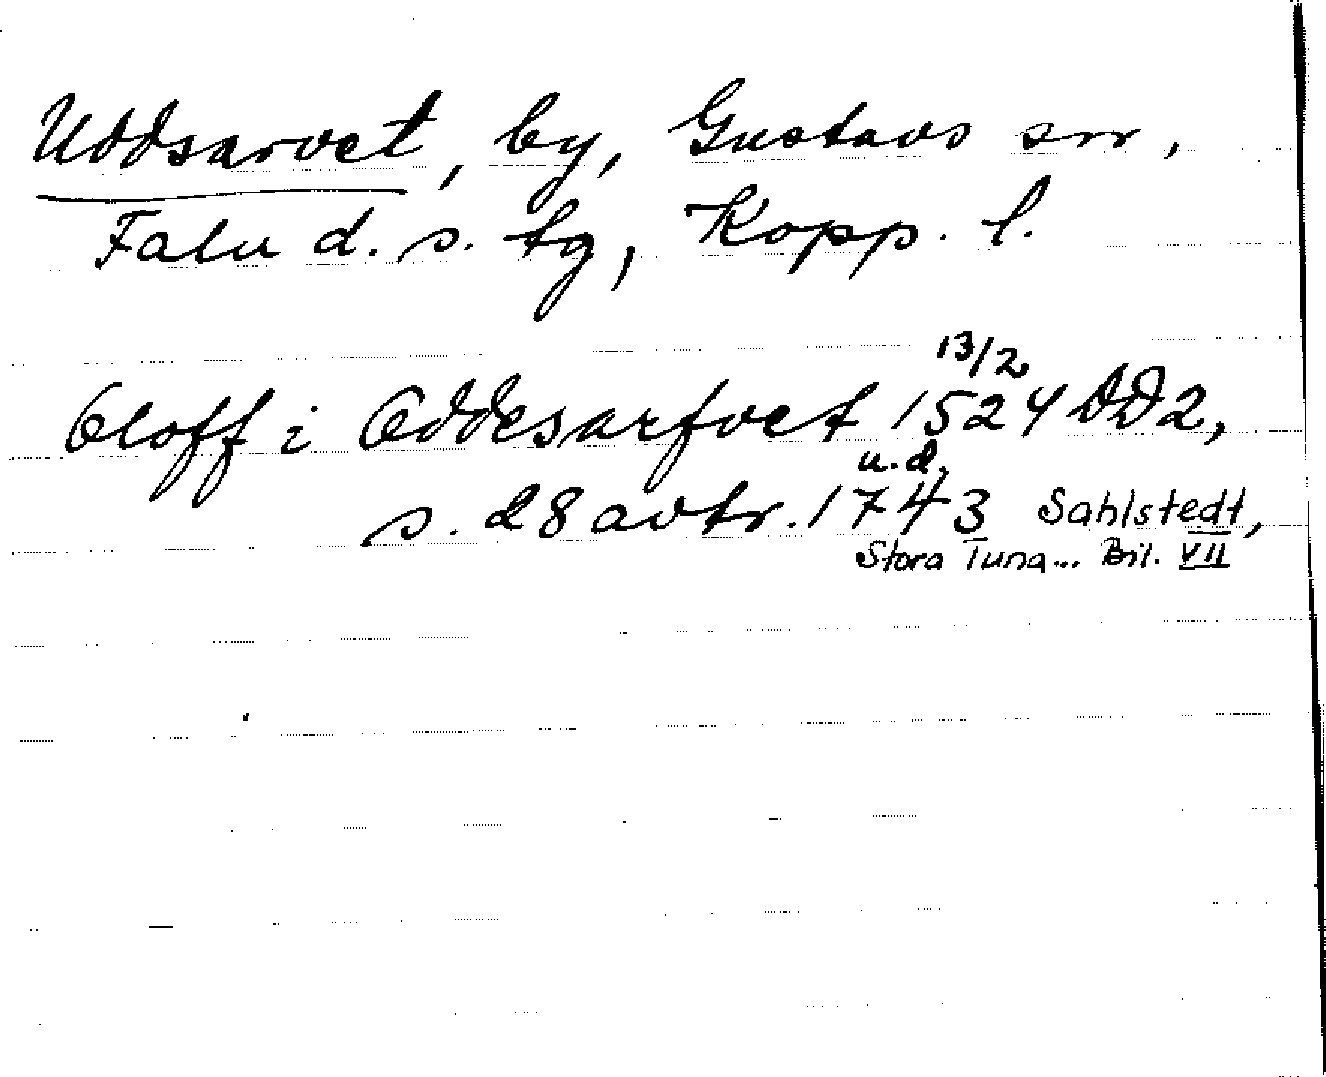 Uddsarvet, by, Gustavs sn,
Falu d. s. tg, Kopp. l.
Oloff i Oddesarfvet 13/2 1524 DD2,
s. 28 avtr. 1743 u.d. Sahlstedt,
Stora Tuna... Bil. VII